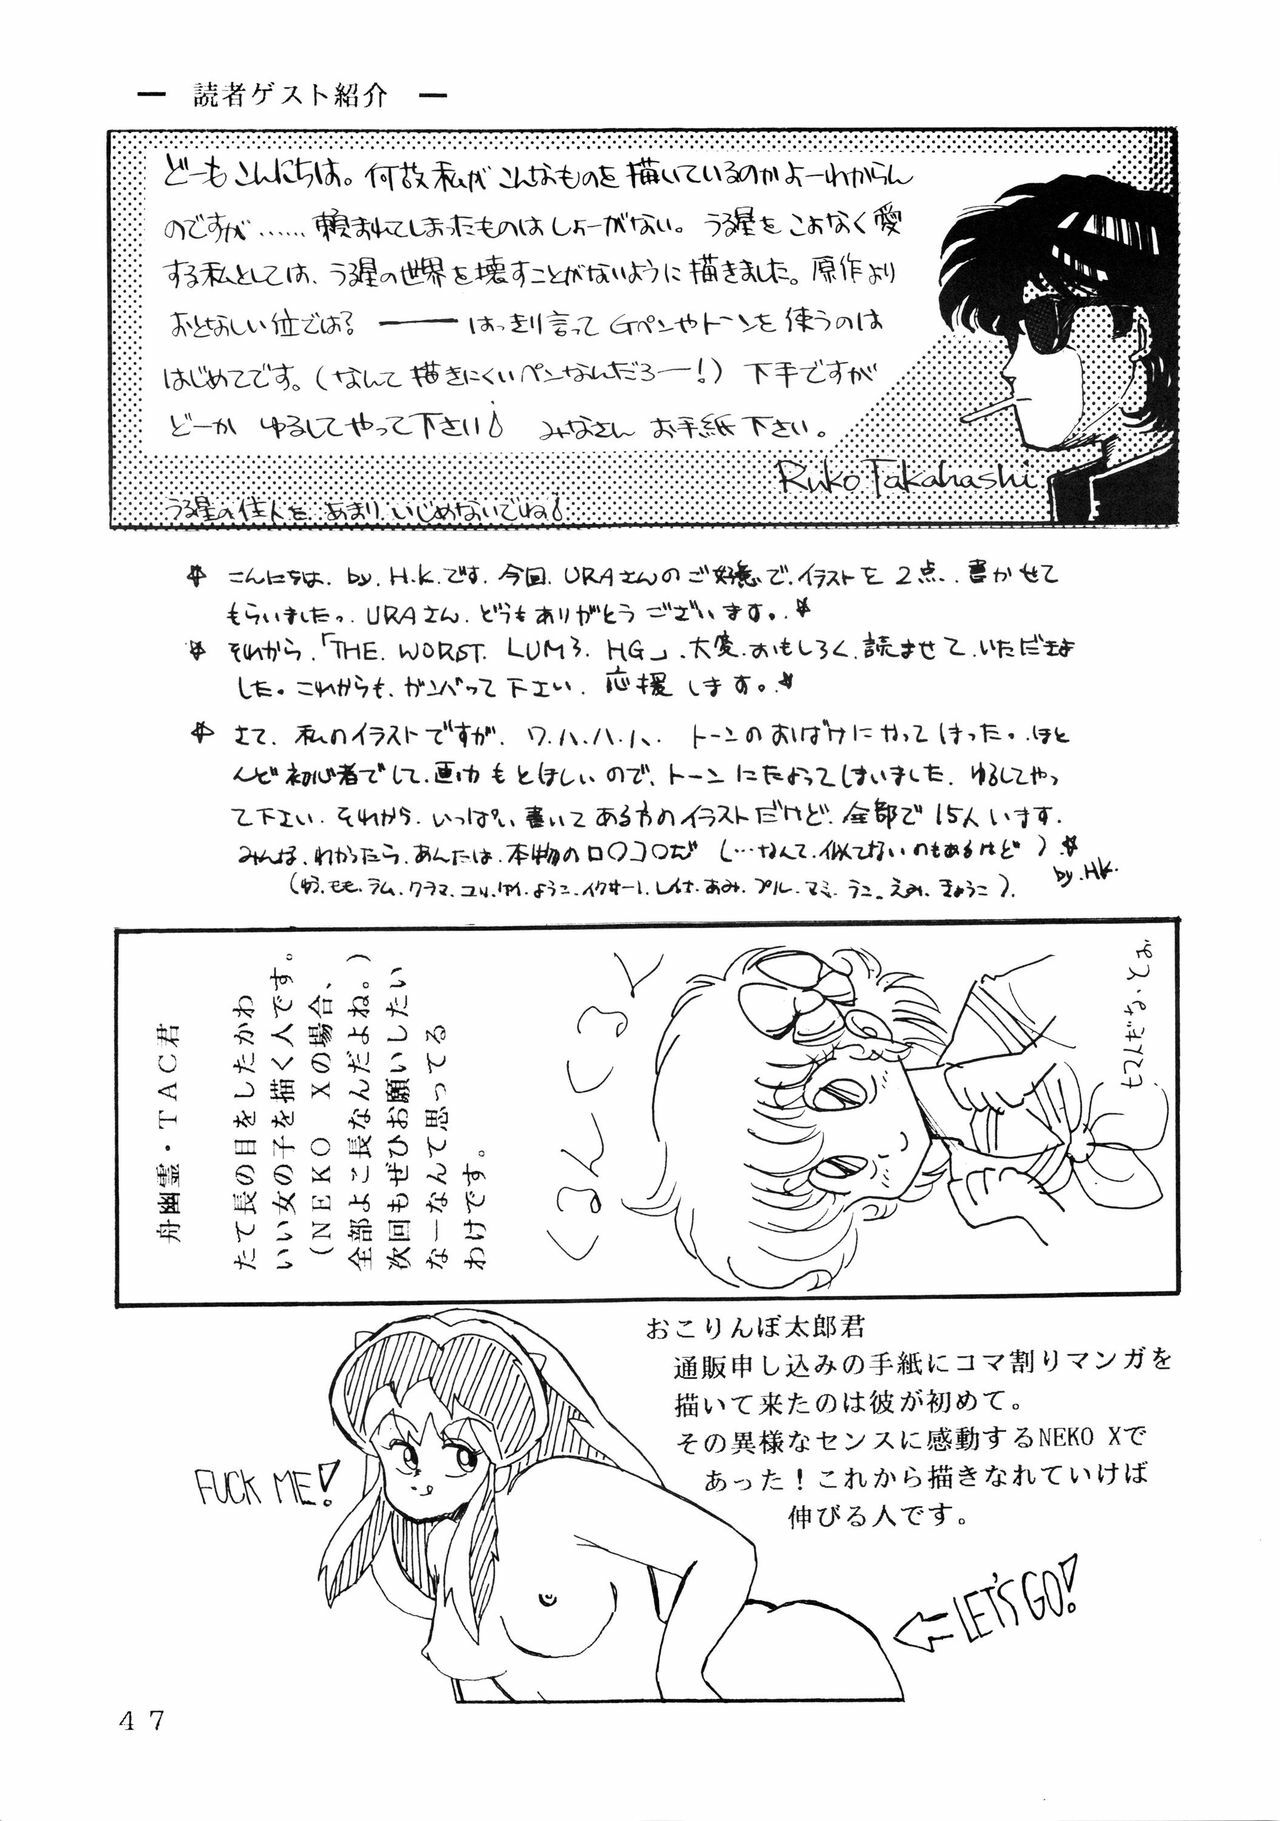 ― 読者ゲスト紹介 ―
どーもこんにちは。何故私がこんなものを描いているのかよーわからん
のですが……頼まれてしまったものはしょーがない。うる星をこよなく愛
する私としては、うる星の世界を壊すことがないように描きました。原作より
おとなしい位では？ ―― はっきり言ってGペンやトーンを使うのは
はじめてです。(なんて描きにくいペンなんだろー！) 下手ですが
どーか ゆるしてやって下さい♪ みなさん お手紙下さい。
Ruko Takahashi
うる星の住人を あまり いじめないでね♪
☆ こんにちは. by. H.K.です. 今回. URAさんのご好意で. イラストを2点. 書かせて
もらいましたっ. URAさん. どうもありがとうございます。☆
☆ それから.「THE. WORST. LUMз. HG」. 大変. おもしろく. 読ませて. いただきま
した。これからも. ガンバって下さい. 応援します。☆
☆ さて. 私のイラストですが. ワ.ハ.ハ.ハ. トーンのおばけにやってはった。ほと
んど初心者でして. 画力もとぼしいので. トーンにたよってしまいました. ゆるしてやっ
て下さい. それから. いっぱい. 書いてある方のイラストだけど. 全部で15人います.
みんな. わかったら. あんたは. 本物のロ○コ○だ (…なんて. 似てないのもあるけど) ☆
by. H.K.
(ゆう. モモ. ラム. クラマ. ユリ. ケイ. ようこ. イクサー1. レイナ. あみ. プル. マミ. ラこ. えみ. きょうこ).
舟幽霊・TAC君
たて長の目をしたかわ
いい女の子を描く人です。
(NEKO Xの場合、
全部よこ長なんだよね。)
次回もぜひお願いしたい
なーなんて思ってる
わけです。
くるんくるん
ヒマんだな・とお
おこりんぼ太郎君
通販申し込みの手紙にコマ割りマンガを
描いて来たのは彼が初めて。
その異様なセンスに感動するNEKO Xで
あった！これから描きなれていけば
伸びる人です。
FUCK ME!
LET'S GO!
47